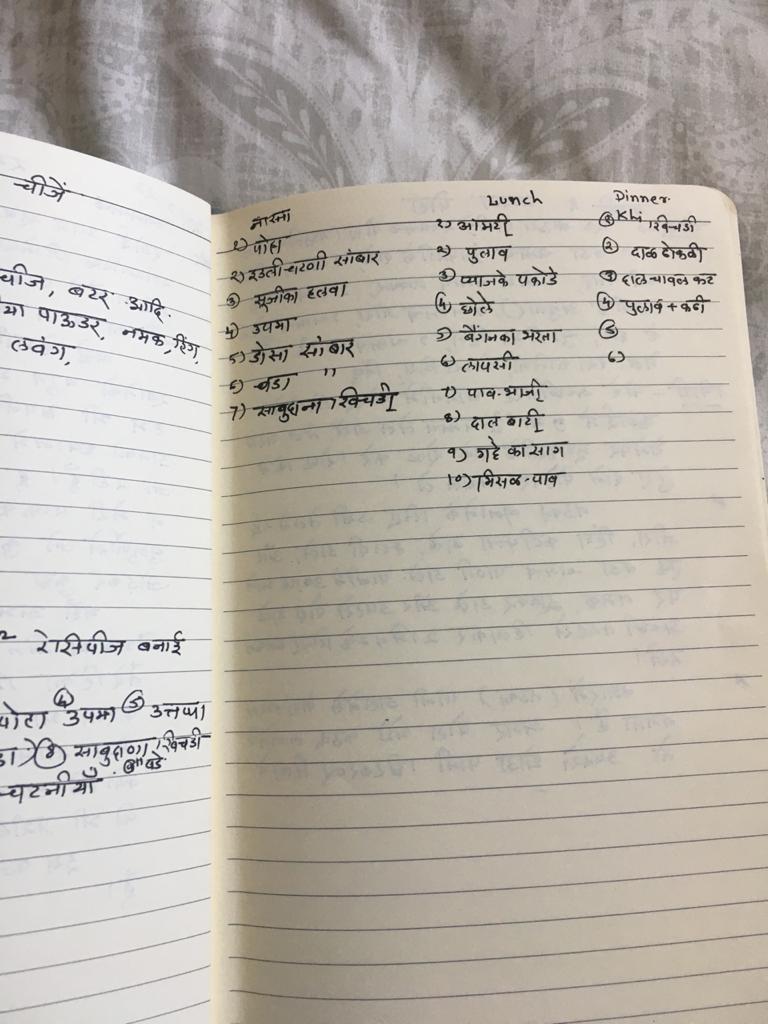 चीजें
चीज, बटर आदि.
पाऊडर, नमक, हिंग,
लवंग,
रेसिपीज बनाई
पोहा ④ उपमा ⑤ उत्तपा
⑧ साबुदाणा खिचडी
वडे
चटनीयाँ
नास्ता
१) पोहा
२) इडली चटणी सांबार
③ सूजीका हलवा
4) उपमा
5) डोसा सांबार
6) वडा "
7) साबुदाना खिचडी
Lunch
१) आमटी
२) पुलाव
③ प्याजके पकोडे
④ छोले
5) बैंगनका भरता
⑥ लापसी
7) पाव-भाजी
8) दाल बाटी
९) गट्टे का साग
१०) मिसळ-पाव
Dinner.
① Khi खिचडी
② दाळ ढोकळी
③ दाल चावल कट
④ पुलाव + कढी
⑤
6)